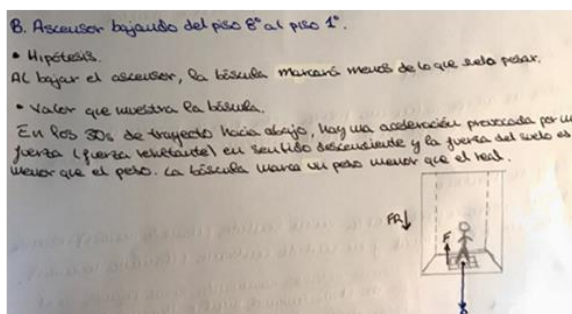 B. Ascensor bajando del piso 8º al piso 1º.
• Hipótesis.
Al bajar el ascensor, la báscula marcará menos de lo que suelo pesar.
• Valor que muestra la báscula.
En los 30s de trayecto hacia abajo, hay una aceleración provocada por una
fuerza (fuerza resultante) en sentido descendiente y la fuerza del suelo es
menor que el peso. La báscula marca un peso menor que el real.
FR
F